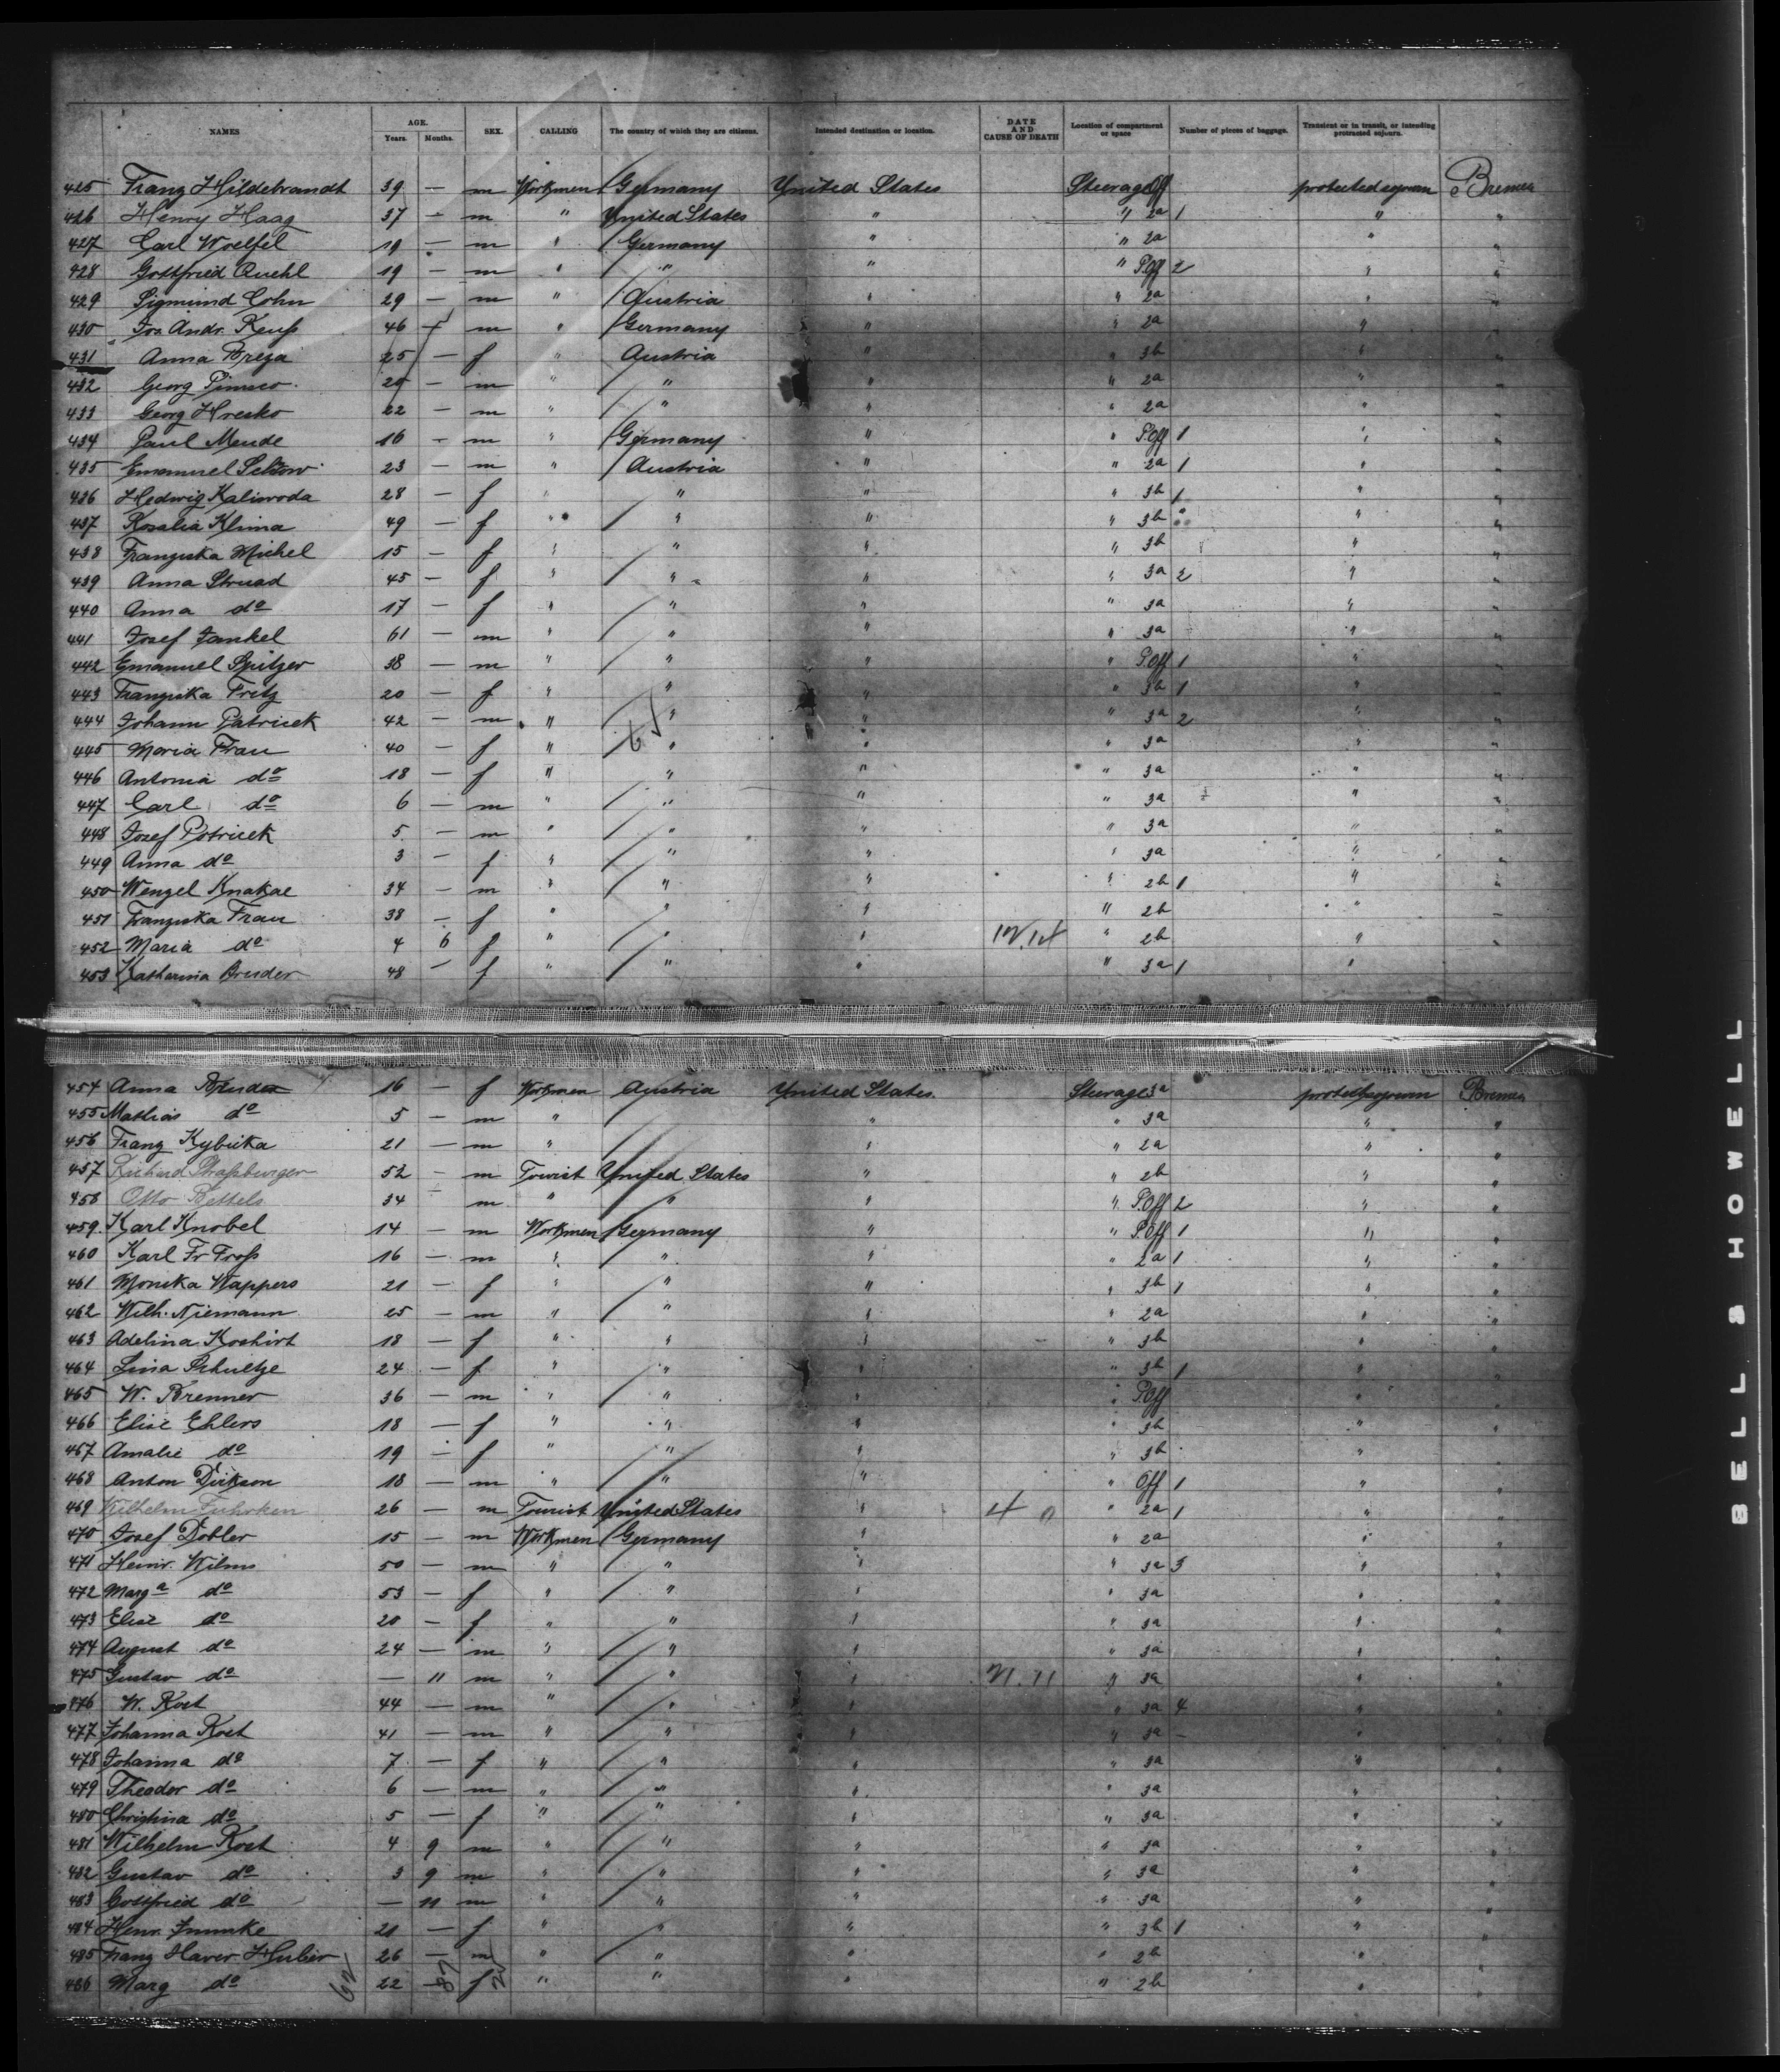 NAMES AGE. Years. Months. SEX. CALLING The country of which they are citizens. Intended destination or location. DATE AND CAUSE OF DEATH Location of compartment or space Number of pieces of baggage. Transient or in transit, or intending protracted sojourn.
425 Franz Hildebrandt 39 — m Workmen Germany United States Steerage Off protected sojourn Bremen
426 Henry Haag 37 — m " United States " " 2a 1 " "
427 Carl Woelfel 19 — m " Germany " " 2a " "
428 Gottfried Quehl 19 — m " " " " P.Off 2 " "
429 Sigmund Cohn 29 — m " Austria " " 2a " "
430 Jos. Andr. Keuß 46 — m " Germany " " 2a " "
431 Anna Breza 25 — f " Austria " " 3b " "
432 Georg 20 — m " " " " 2a " "
433 Georg Hresko 22 — m " " " " 2a " "
434 Paul Mende 16 — m " Germany " " P.Off 1 " "
435 Emanuel 23 — m " Austria " " 2a 1 " "
436 Hedwig Kaliwoda 28 — f " " " " 3b 1 " "
437 Rosalia Klima 49 — f " " " " 3b " " "
438 Franziska Michel 15 — f " " " " 3b " "
439 Anna Strnad 45 — f " " " " 3a 2 " "
440 Anna do 17 — f " " " " 3a " "
441 Josef Jankel 61 — m " " " " 3a " "
442 Emanuel Spitzer 38 — m " " " " P.Off 1 " "
443 Franziska Fritz 20 — f " " " " 3b 1 " "
444 Johann Patricek 42 — m " " " " 3a 2 " "
445 Maria Frau 40 — f " " " " 3a " "
446 Antonia do 18 — f " " " " 3a " "
447 Carl do 6 — m " " " " 3a " "
448 Josef Potricek 5 — m " " " " 3a " "
449 Anna do 3 — f " " " " 3a " "
450 Wenzel Knakal 34 — m " " " " 2b 1 " "
451 Franziska Frau 38 — f " " " " 2b " "
452 Maria do 4 6 f " " " " 2b " "
453 Katharina Bruder 48 — f " " " " 3a 1 " "
454 Anna Bruder 16 — f Workmen Austria United States. Steerage 3a protect sojourn Bremen
455 Mathias do 5 — m " " " 3a " "
456 Franz Kybicka 21 — m " " " 2a " "
457 Richard Straßburger 52 — m Tourist United States " " 2b " "
458 Otto Bettels 34 m " " " " P.Off 2 " "
459. Karl Knobel 14 — m Workmen Germany " " P.Off 1 " "
460 Karl Fr Troß 16 — m " " " " 2a 1 " "
461 Monika Wappers 21 — f " " " " 3b 1 " "
462 Wilh. Niemann 25 — m " " " " 2a " "
463 Adelina Koshirt 18 — f " " " " 3b " "
464 Lina Schultze 24 — f " " " " 3b 1 " "
465 W. Brenner 36 — m " " " " P.Off " "
466 Elise Ehlers 18 — f " " " " 3b " "
467 Amalie do 19 — f " " " " 3b " "
468 Anton Dirkson 18 — m " " " " Off 1 " "
469 Wilhelm Fuhrken 26 — m Tourist United States " " 2a 1 " "
470 Josef Dobler 15 — m Workmen Germany " " 2a " "
471 Heinr. Wilms 50 — m " " " " 3a 3 " "
472 Marga do 53 — f " " " " 3a " "
473 Elise do 20 — f " " " " 3a " "
474 August do 24 — m " " " " 3a " "
475 Gustav do — 11 m " " " " 3a " "
476 W. Kost 44 — m " " " " 3a 4 " "
477 Johanna Kost 41 — m " " " " 3a - " "
478 Johanna do 7 — f " " " " 3a " "
479 Theodor do 6 — m " " " " 3a " "
480 Christina do 5 — f " " " " 3a " "
481 Wilhelm Kost 4 9 m " " " " 3a " "
482 Gustav do 3 9 m " " " " 3a " "
483 Gottfried do — 11 m " " " " 3a " "
484 Henr. 21 — f " " " " 3b 1 " "
485 Franz Xaver Huber 26 — m " " " " 2b " "
486 Marg do 22 — f " " " " 2b " "
BELL & HOWELL